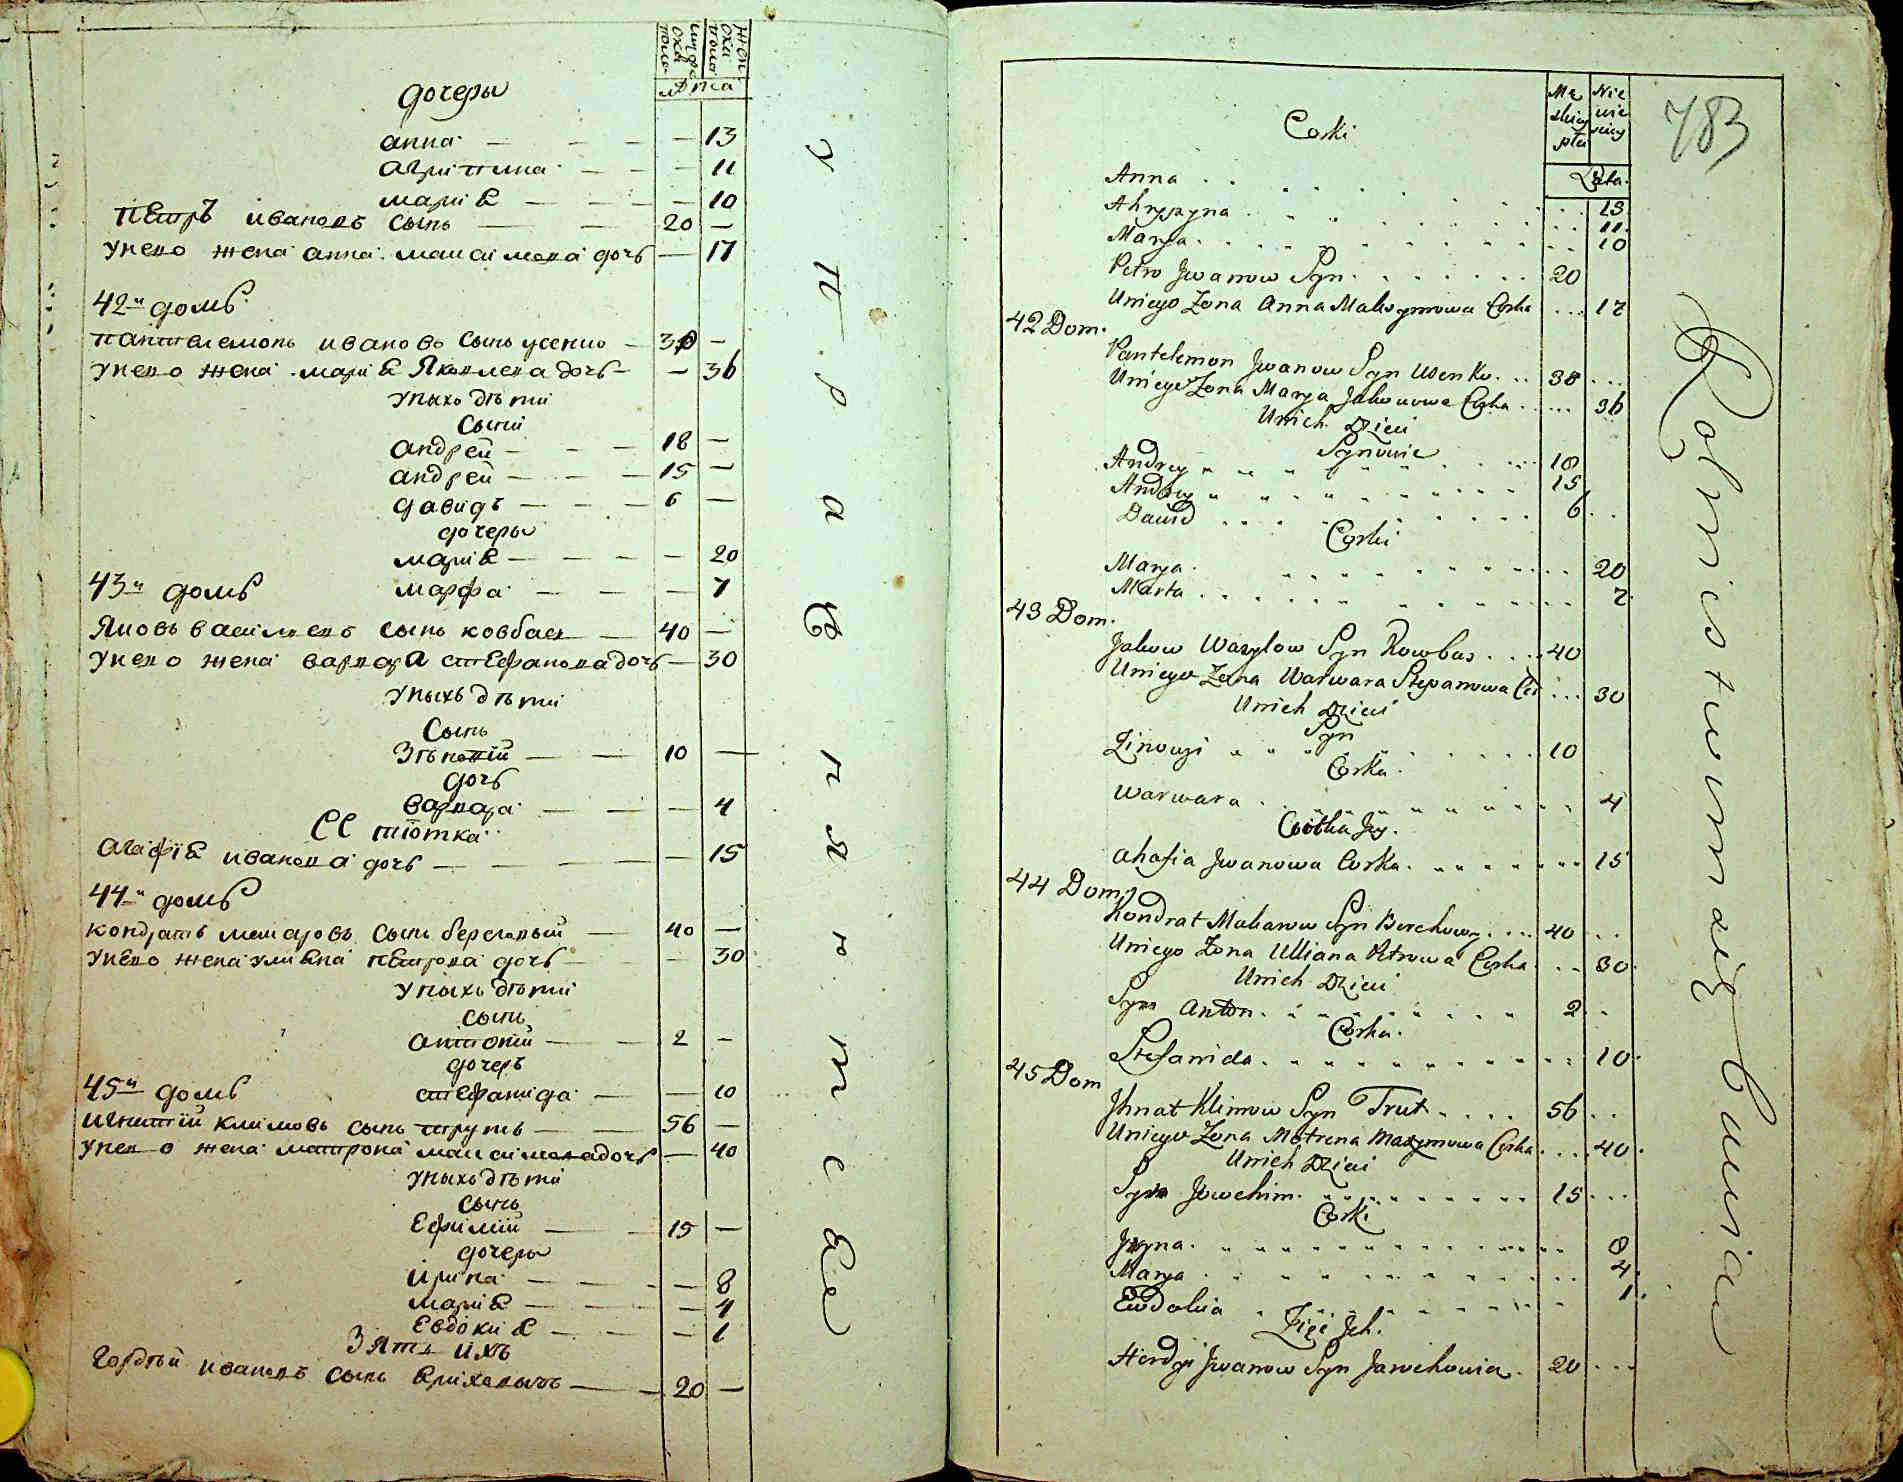 дочеры
лѣта
анна — — — — 13
агрипина — — — 11
маріѣ — — — — 10
петръ ивановъ сынъ — — 20 —
унего жена анна максимова дочь — 17
42й домъ
пантелемонъ ивановъ сынъ усенко — 38 —
унего жена маріѣ Яковлева дочь — — 36
уныхъ дѣти
Сыны
андрей — — — 18 —
андрей — — — 15 —
давидъ — — — 6 —
дочеры
маріѣ — — — — 20
43й домъ марфа — — — 7
Яковъ василиевъ сынъ ковбаса — 40 —
унего жена варвара стефанова дочь — 30
уныхъ дѣти
Сынъ
Зѣновій — — 10 —
дочь
варвара — — — 4
ЕЕ тіотка
агафіѣ иванова дочь — — — — 15
44й домъ
кондратъ макаровъ сынъ береговый — 40 —
унего жена улиѣна петрова дочь — — 30
уныхъ дѣти
сынъ
антоній — — 2 —
дочеръ
45й домъ стефанида — — 10
игнатій климовъ сынъ трутъ — — 56 —
унего жена матрона максимова дочь — 40
уныхъ дѣти
сынъ
Ефимій — — 15 —
дочеры
ирина — — — — 8
маріѣ — — — — 4
Евдокиѣ — — — 1
Зять ихъ
гордѣй ивановъ сынъ — — 20 —
783
Corki
Męzkiey płci
Niewiesciey
Lata.
Anna . . . 13
Ahrypyna . . . 11.
Marya . . . 10
Petro Jwanow Syn . . . 20
Uniego Zona Anna Maksymowa Corka . . . 17
42 Dom.
Pantelemon Jwanow Syn Usenko . . . 38 . . .
Uniego Zona Marya Jakowowa Corka . . . 36
Unich Dzieci
Synowie
Andrey . . . 18
Andrey . . . 15
Dawid . . . 6 . .
Corki
Marya . . . 20
Marta . . . 7.
43 Dom.
Jakow Wasylow Syn Kowbas . . . 40
Uniego Zona Warwara Stepanowa Cor . . . 30
Unich Dzieci
Syn
Zinowji . . . 10
Corka.
Warwara . . . 4
Ciotka Jey.
Ahafia Jwanowa Corka . . . 15
44 Dom.
Kondrat Makarow Syn Berehowy . . . 40 . .
Uniego Zona Ulliana Petrowa Corka . . . 30.
Unich Dzieci
Syn Anton . . . 2 .
Corka.
Stefanida . . . 10.
45 Dom
Jhnat Klimow Syn Trut . . . 56 . .
Uniego Zona Motrena Maxymowa Corka . . . 40.
Unich Dzieci
Syn Jowchim . . . 15 . . .
Corki
Jryna . . . 8
Marya . . . 4.
Ewdokia . . . 1.
Zięć Jch.
Hordyi Jwanow Syn Jarochowia . 20 . . .